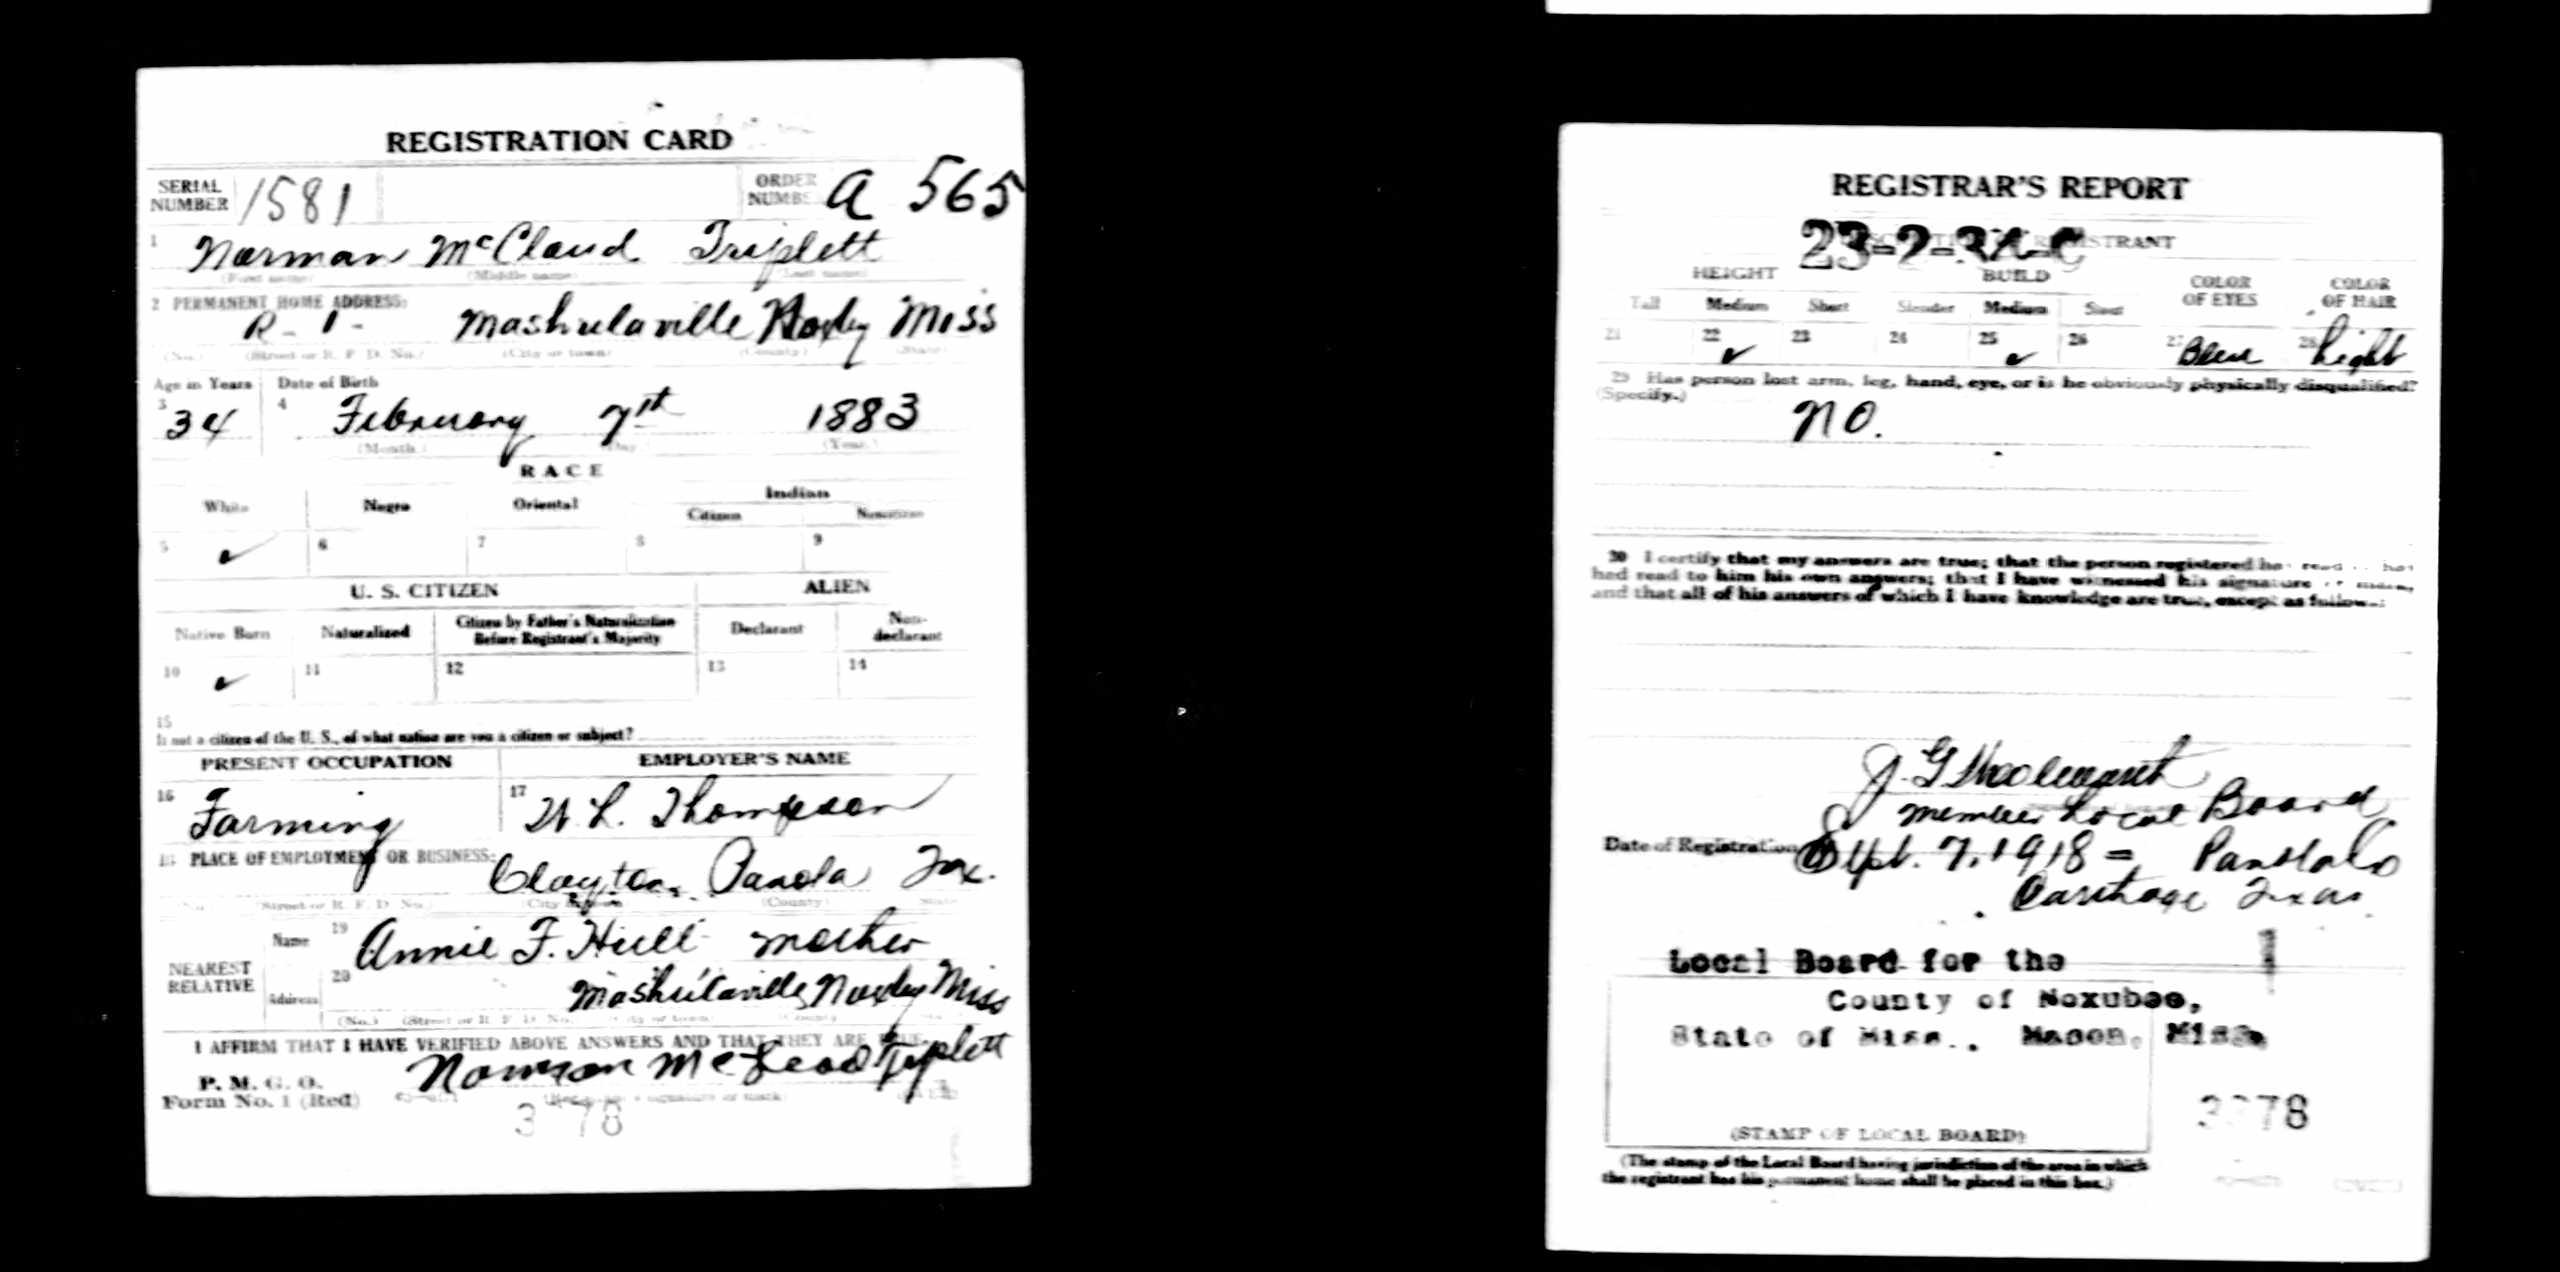 REGISTRATION CARD
SERIAL NUMBER 1581 ORDER NUMBER A 565
1 Norman McClaud Triplett
(First name) (Middle name) (Last name)
2 PERMANENT HOME ADDRESS:
R - 1 - Mashulaville Noxby Miss
(No.) (Street or R. F. D. No.) (City or town) (County) (State)
Age in Years Date of Birth
3 34 4 February 7th 1883
(Month) (Day) (Year)
RACE
White Negro Oriental Indian
Citizen Noncitizen
5 ✓ 6 7 8 9
U. S. CITIZEN ALIEN
Native Born Naturalized Citizen by Father's Naturalization Before Registrant's Majority Declarant Non-declarant
10 ✓ 11 12 13 14
15
If not a citizen of the U. S., of what nation are you a citizen or subject?
PRESENT OCCUPATION EMPLOYER'S NAME
16 Farming 17 W. L. Thompson
18 PLACE OF EMPLOYMENT OR BUSINESS:
Clayton, Panola Tex.
(No.) (Street or R. F. D. No.) (City or town) (County) (State)
NEAREST RELATIVE Name 19 Annie F. Hull - mother
Address 20 Mashulaville, Noxby Miss
(No.) (Street or R. F. D. No.) (City or town) (County) (State)
I AFFIRM THAT I HAVE VERIFIED ABOVE ANSWERS AND THAT THEY ARE TRUE
P. M. G. O.
Form No. 1 (Red) Norman McLeod Triplett
(Registrant's signature or mark)
3 78
REGISTRAR'S REPORT
23-2-3 -C
REGISTRANT
HEIGHT BUILD COLOR OF EYES COLOR OF HAIR
Tall Medium Short Slender Medium Stout
21 22 ✓ 23 24 25 ✓ 26 27 Blue 28 Light
29 Has person lost arm, leg, hand, eye, or is he obviously physically disqualified?
(Specify.) No.
30 I certify that my answers are true; that the person registered has read or has
had read to him his own answers; that I have witnessed his signature or mark,
and that all of his answers of which I have knowledge are true, except as follows:
J. G. Woolworth
Member Local Board
Date of Registration Sept. 7, 1918 = Panola Co
Carthage Texas
Local Board for the 1
County of Noxubee,
State of Miss., Macon, Miss.
3 78
(STAMP OF LOCAL BOARD)
(The stamp of the Local Board having jurisdiction of the area in which
the registrant has his permanent home shall be placed in this box.)